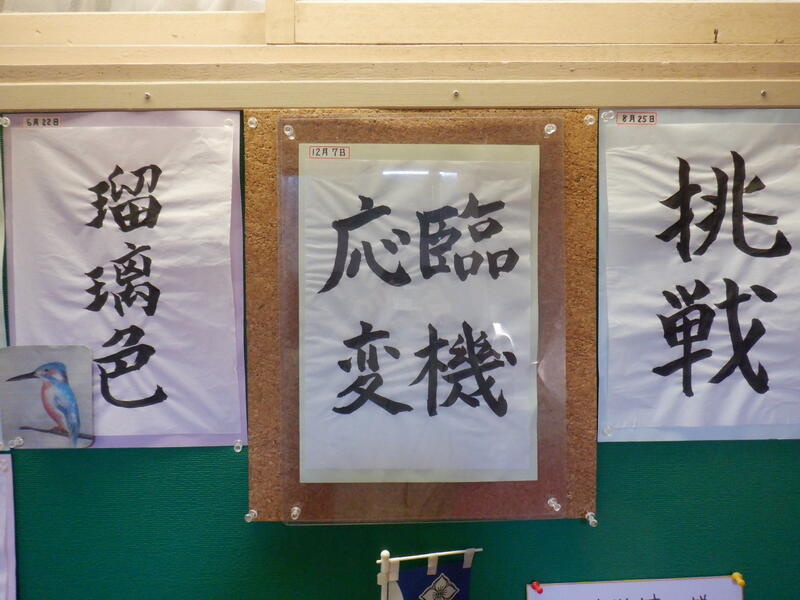 6月22日
瑠璃色
12月7日
臨機
応変
8月25日
挑戦